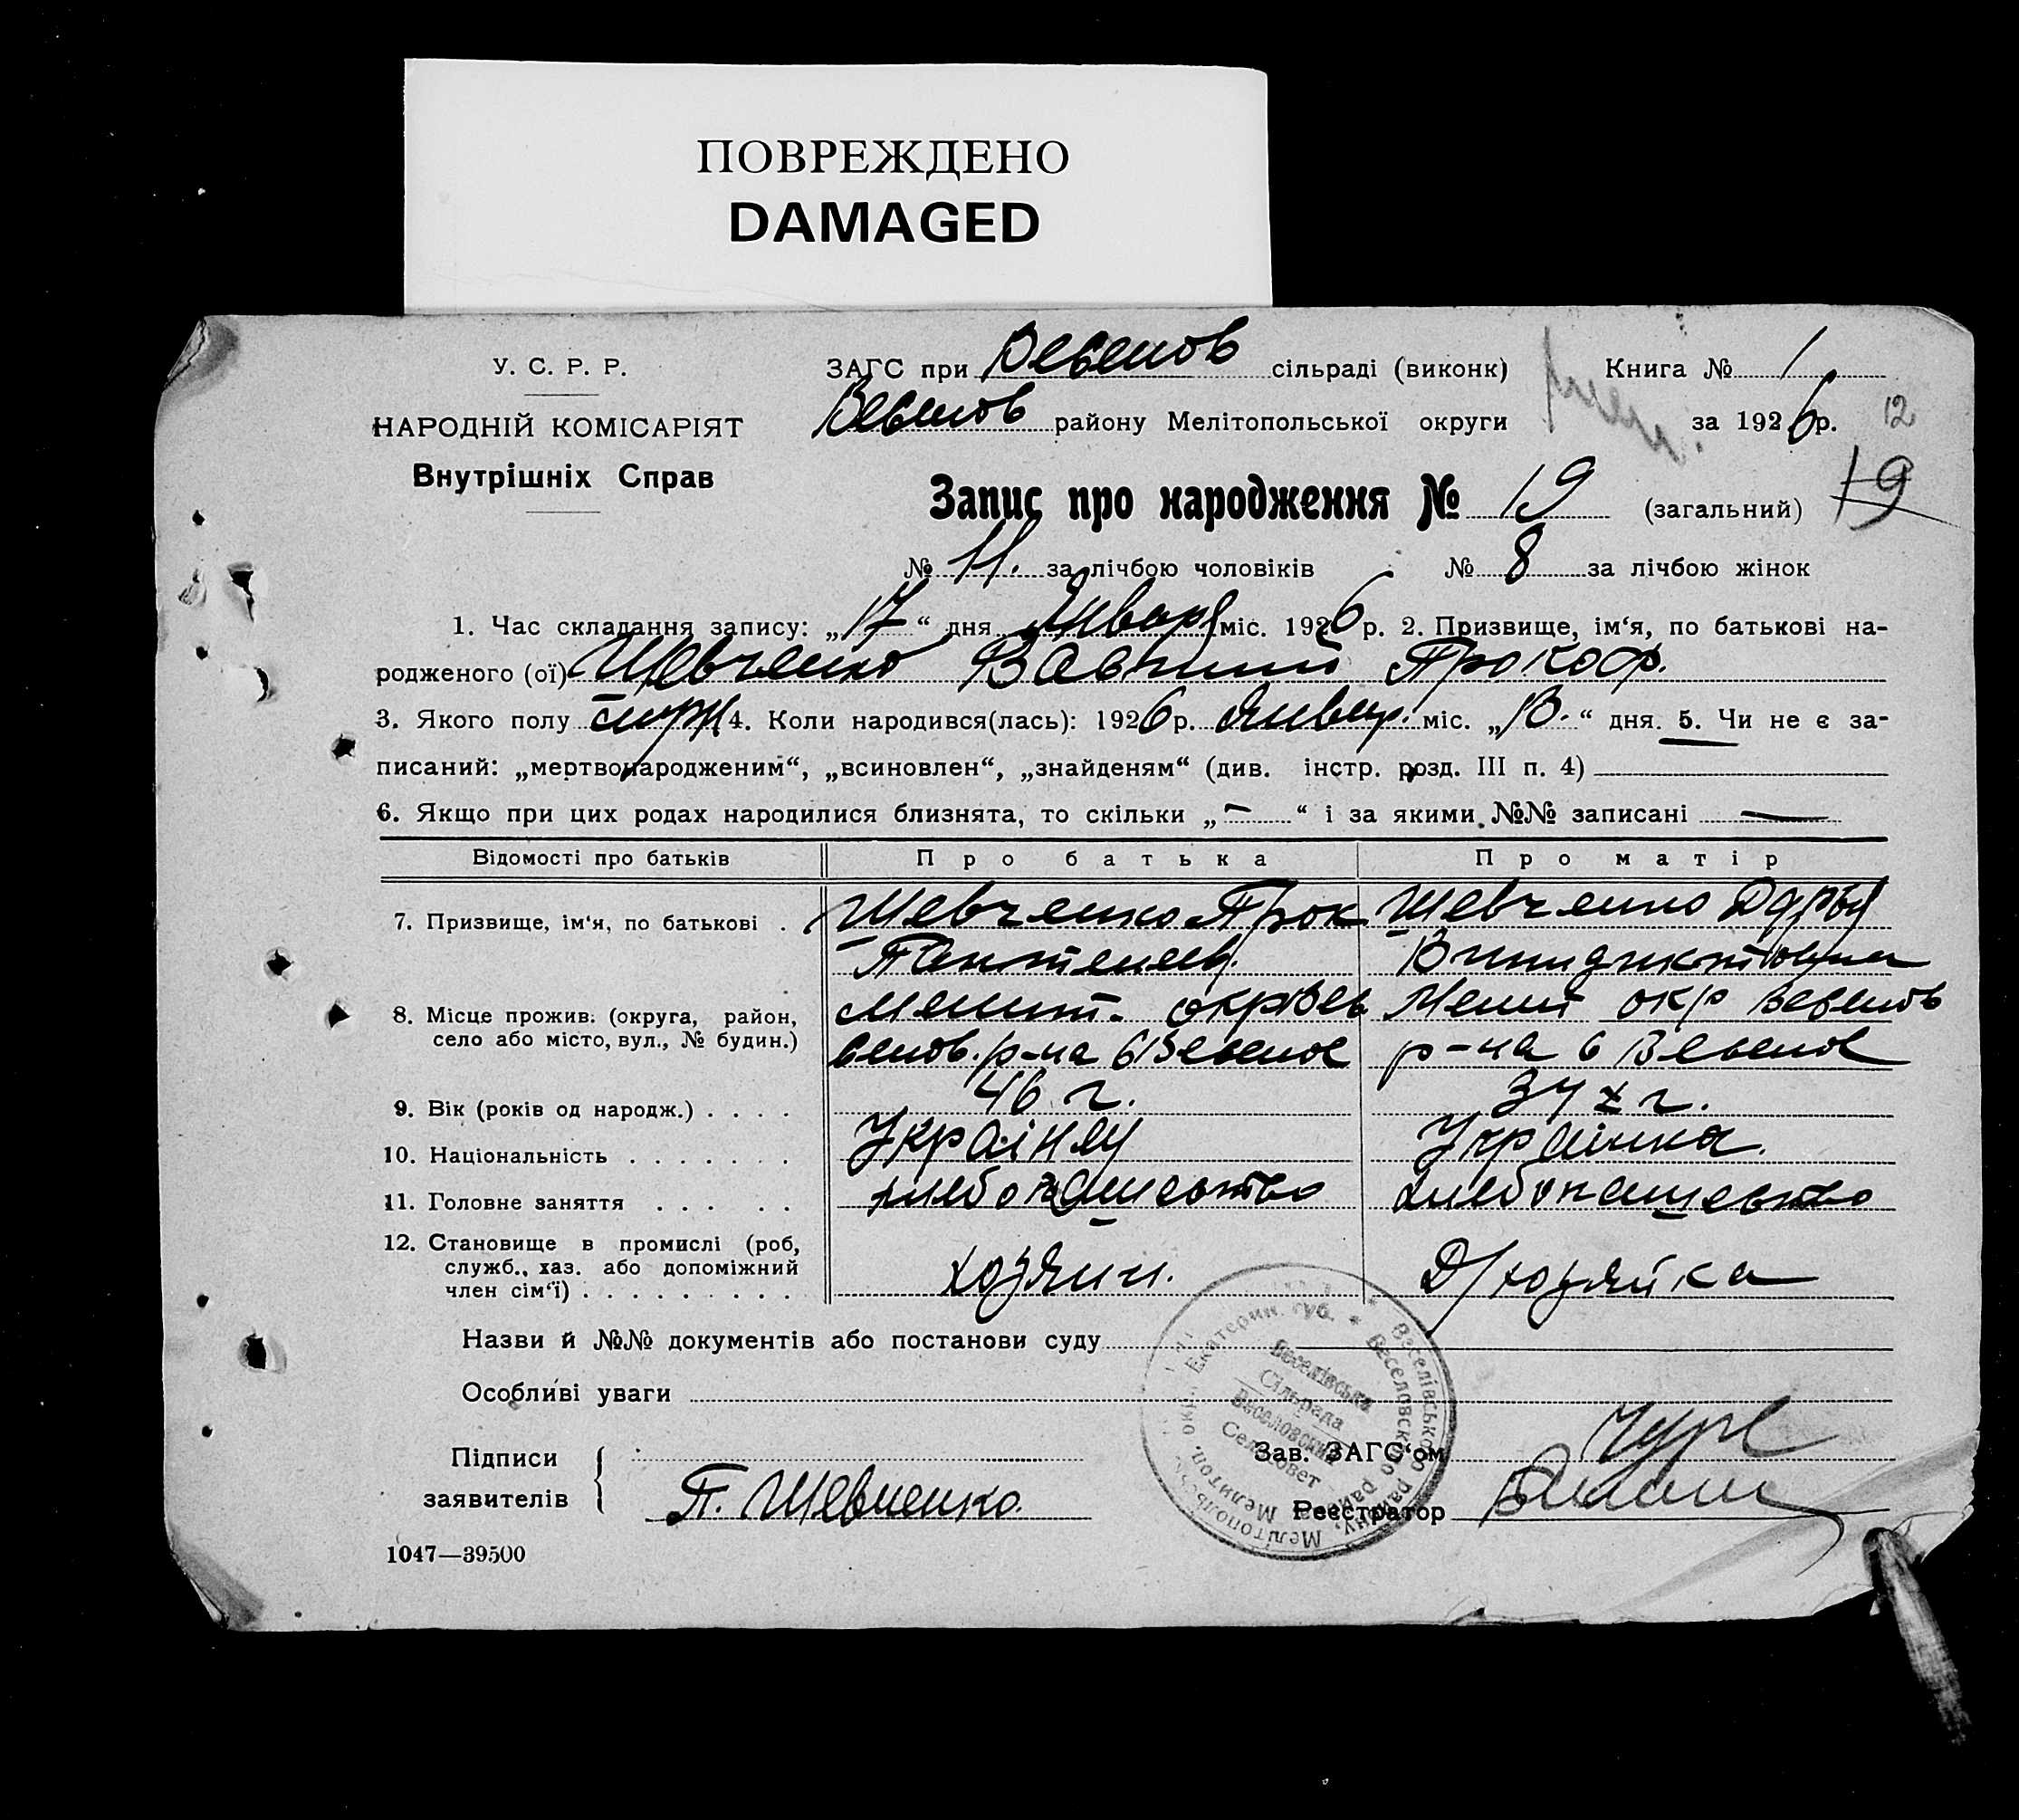 ПОВРЕЖДЕНО
DAMAGED
У. С. Р. Р.
НАРОДНІЙ КОМІСАРІЯТ
Внутрішніх Справ
ЗАГС при Веселов сільраді (виконк)
Веселов району Мелітопольської округи
Книга № 1
за 1926 р. 12
Запис про народження № 19 (загальний) 19
№ 11. за лічбою чоловіків № 8 за лічбою жінок
1. Час складання запису: „17“ дня Январ міс. 1926 р. 2. Призвище, ім'я, по батькові на-
родженого (ої) Шевченко Прокоф.
3. Якого полу 4. Коли народився(лась): 1926 р. Январ. міс. „13.“ дня. 5. Чи не є за-
писаний: „мертвонародженим“, „всиновлен“, „знайденям“ (див. інстр. розд. III п. 4)
6. Якщо при цих родах народилися близнята, то скільки „—“ і за якими №№ записані —
Відомості про батьків Про батька Про матір
7. Призвище, ім'я, по батькові . Шевченко Прок Шевченко Дарья
Пантелеев.
8. Місце прожив. (округа, район, Мелит. окр Весе Мелит окр Веселов
село або місто, вул., № будин.) селов. р-на с Веселое р-на с Веселое
9. Вік (років од народж.) . . . . 46 г. 34 г.
10. Національність . . . . . . . Українец Українка.
11. Головне заняття . . . . . хлебопашество хлебопашество
12. Становище в промислі (роб,
служб., хаз. або допоміжний хозяин. Д/хозяйка
член сім'ї) . . . . . . . . .
Назви й №№ документів або постанови суду
Особливі уваги
Підписи
заявителів П. Шевченко.
Зав. ЗАГС'ом
Реєстратор
Веселівська
Сільрада
Веселовский
Сельсовет
1047—39500